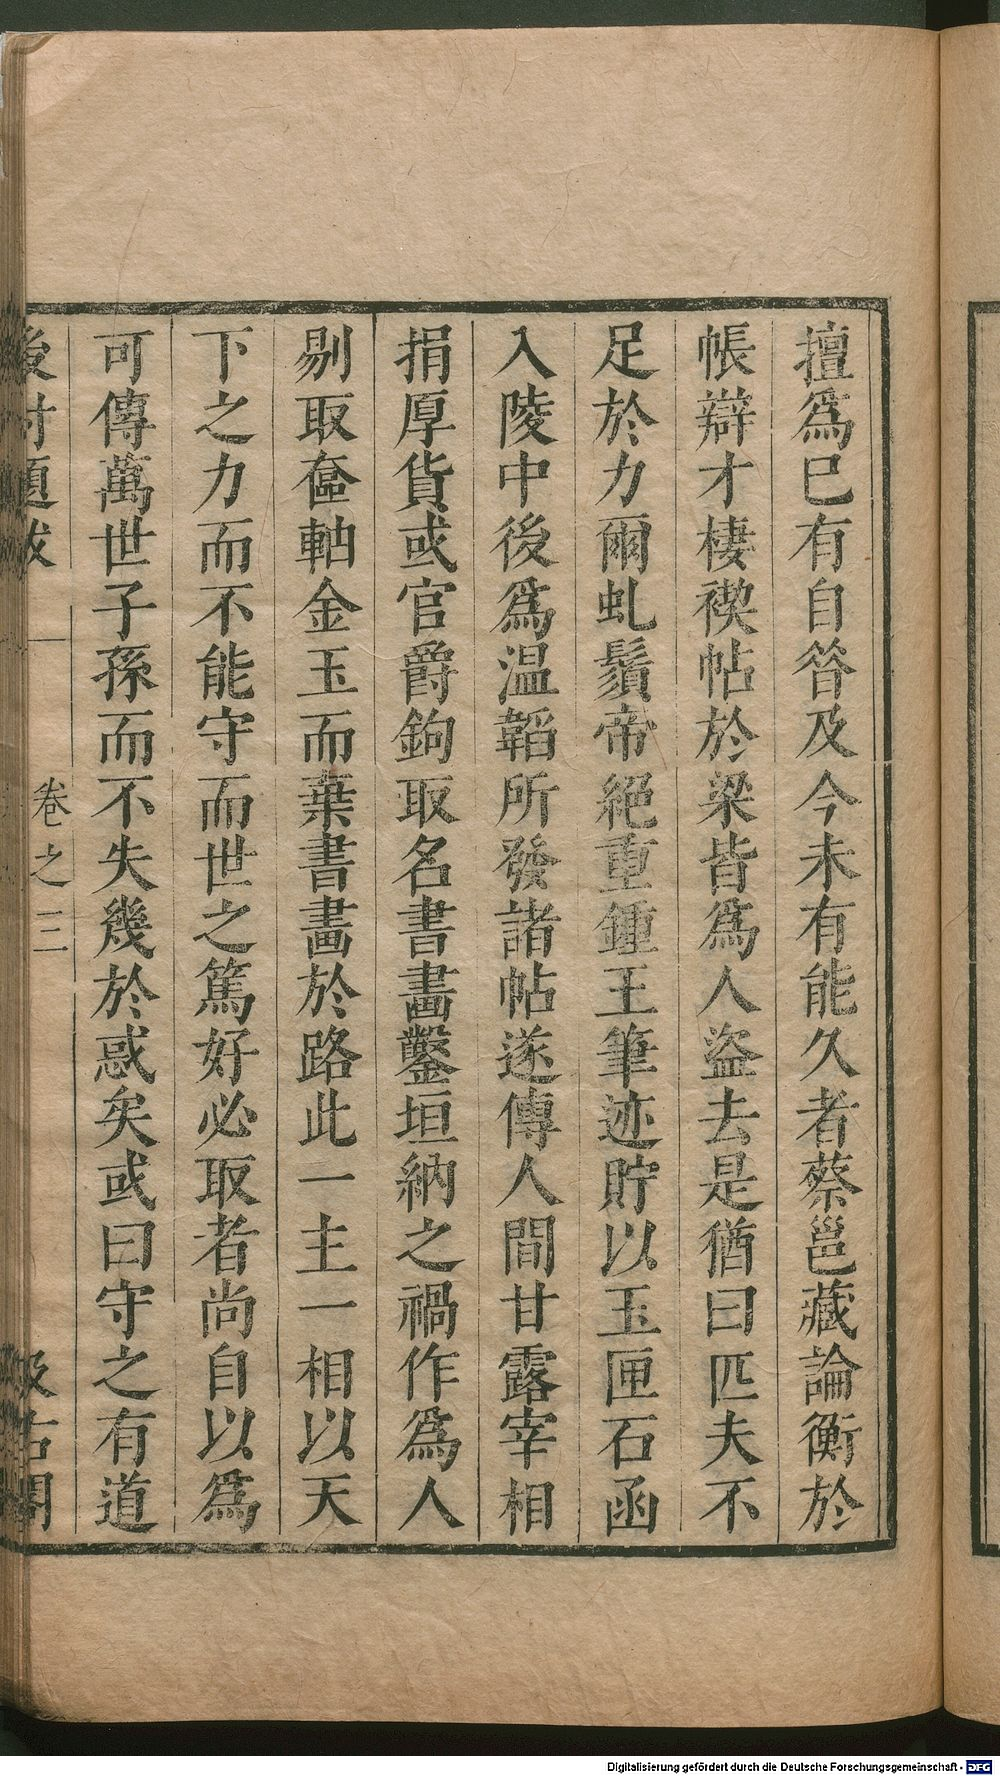 擅爲巳有自昝及今未有能久者蔡邕藏論衡於
帳辯才棲禊帖於梁皆爲人盜去是猶曰匹夫不
足於力爾虬鬚帝絕重鍾王筆迹貯以玉匣石函
入陵中後爲温韜所發諸帖遂傳人間甘露宰相
捐厚貨或官爵鉤取名書畫鑿垣納之禍作爲人
剔取奩軸金玉而棄書畫於路此一主一相以天
下之力而不能守而世之篤好必取者尚自以爲
可傳萬世子孫而不失幾於惑矣或曰守之有道
後村題跋 卷之三 汲古閣
Digitalisierung gefördert durch die Deutsche Forschungsgemeinschaft - DFG